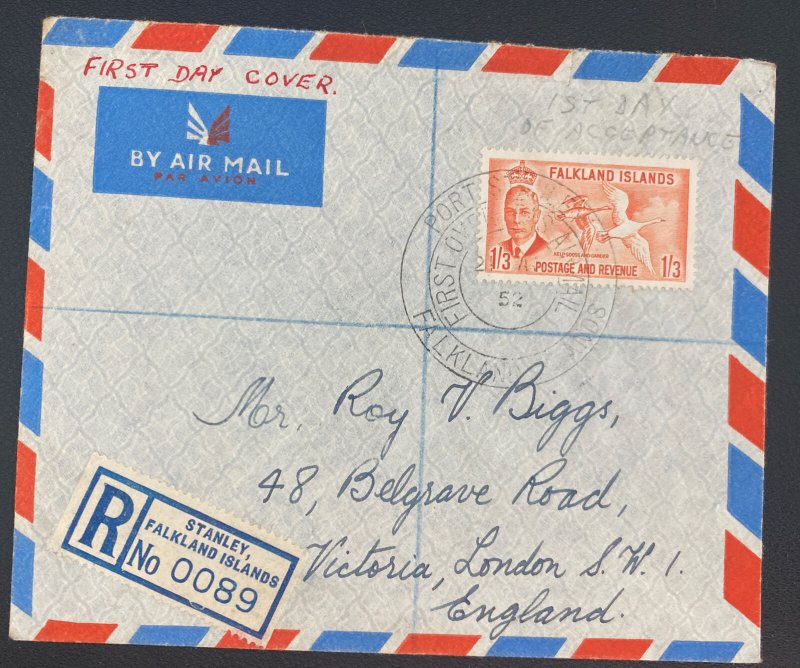 FIRST DAY COVER.
1ST DAY
OF ACCEPTANCE
BY AIR MAIL
PAR AVION
FALKLAND ISLANDS
KELP GOOSE AND GANDER
1/3 POSTAGE AND REVENUE 1/3
PORT
FIRST
52
FALKLAND
Mr. Roy V. Biggs,
48, Belgrave Road,
Victoria, London S.W.1.
England.
R
STANLEY,
FALKLAND ISLANDS
No 0089